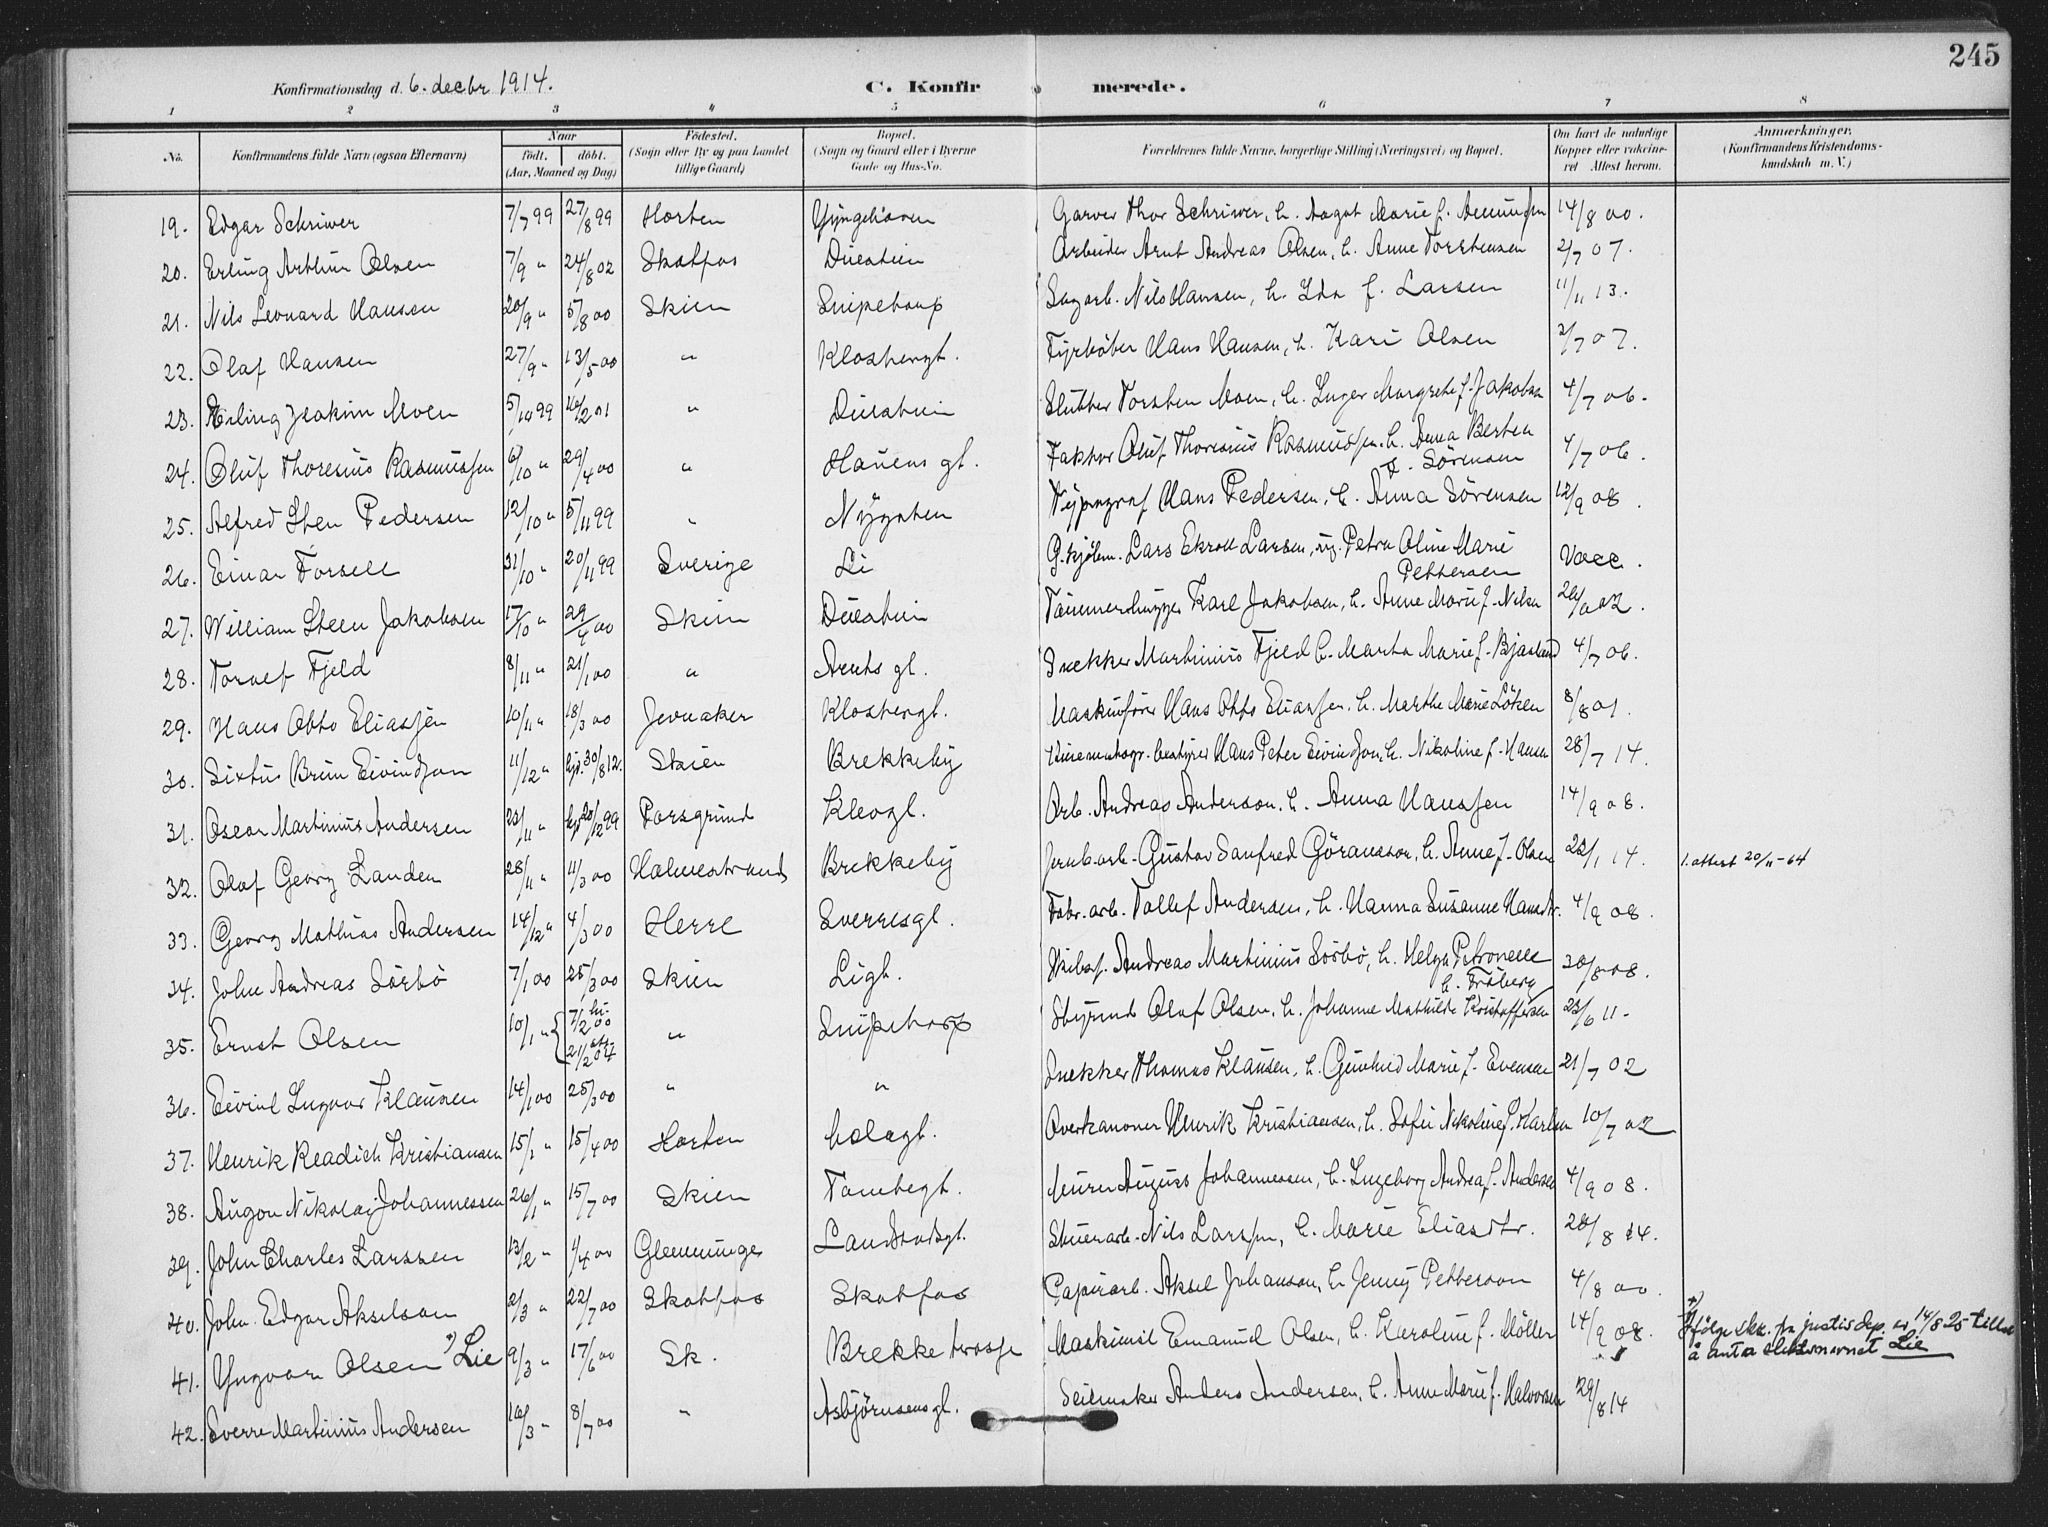 245
Konfirmationsdag d. 6. decbr 1914.
C. Konfirmerede.
1 2 3 4 5 6 7 8
No. Konfirmandens fulde Navn (ogsaa Efternavn) Naar født. døbt. (Aar, Maaned og Dag) Fødested. (Sogn eller By og paa Landet tillige Gaard) Bopæl. (Sogn og Gaard eller i Byerne Gade og Hus-No. Forældrenes fulde Navne, borgerlige Stilling (Næringsvei) og Bopæl. Om havt de naturlige Kopper eller vakcineret Attest herom. Anmærkninger. (Konfirmandens Kristendomskundskab m. V.)
19. Edgar Schriwer 7/7 99 27/8 99 Horten Garver Thor Schriwer, h. Aagot Marie f. Amundsen 14/8 00.
20. Erling Arthur Olsen 7/9 " 24/8 02 Skotfos Duestien Arbeider Arnt Andreas Olsen, h. Anne Torstensen 2/7 07.
21. Nils Leonard Hansen 20/9 " 5/8 00 Skien Snipetorp Sagarb. Nils Hansen, h. Ida f. Larsen 11/11 13.
22. Olaf Hansen 27/9 " 13/5 00 " Klostergt. Fyrbøter Hans Hansen, h. Kari Olsen 2/7 07.
23. Erling Joakim Moen 5/10 99 10/2 01 " Duestien Torsten Moen, h. Inger Margrethe f. Jakobsen 4/7 06.
24. Oluf Thoresius Rasmussen 6/10 " 29/4 00 " Havens gt. Faktor Oluf Thoresius Rasmussen, h. Anna Berten
F. Sörensen 4/7 06.
25. Alfred Sten Pedersen 12/10 " 5/11 99 " Nygaten Typograf Hans Pedersen, h. Anna Sörensen 12/9 08.
26. Einar Forsell 31/10 " 20/11 99 Sverige Li Lars Ekroll Larsen, ug. Petra Oline Marie
Pettersen Vacc.
27. William Steen Jakobsen 17/10 " 29/4 00 Skien Duestien Tømmerhugger Karl Jakobsen, h. Anne Marie f. Nilsen
28. Torlef Fjeld 8/11 " 21/1 00 " Arnts gt. Snekker Martinius Fjeld h. Marta Marie f. Bjaaland 4/7 06.
29. Hans Otto Eliassen 10/11 " 18/3 00 Jevnaker Klostergt. Maskinfører Hans Otto Eliassen, h. Marthe Marie Löken 8/8 01.
30. Sixtus Brun Eivindson 11/12 " hjd. 30/8 12. Skien Brekkeby Kinematogr. bestyrer Hans Peter Eivindson, h. Nikoline f. Hansen 28/7 14.
31. Oscar Martinius Andersen 23/11 " hjd 20/12 99 Porsgrund Kleogt. Arb. Andreas Anderson, h. Anna Hanssen 14/9 08.
32. Olaf Georg Landen 28/11 " 11/3 00 Holmestrand Brekkeby Jernb. arb. Gustav Sanfred Göransson, h. Anne f. Olsen 23/1 14. 1. attest 20/11-64
33. Georg Mathias Andersen 14/12 " 4/3 00 Herre Sverresgt. Fabr. arb. Tollef Andersen, h. Hanna Susanne Hansdtr. 4/9 08.
34. John Andreas Sörbö 7/1 00 25/3 00 Skien Ligt. Skibsf. Andreas Martinius Sörbö, h. Helga Petronelle
h. Fröberg 30/8 08.
35. Ernst Olsen 10/1 " { 7/2 00 21/2 04 " Snipetorp Styrmd Olaf Olsen, h. Johanne Mathilde Kristoffersen 23/6 11.
36. Eivind Ingvar Klausen 14/1 00 25/3 00 " " Snekker Thomas Klausen, h. Gunhild Marie f. Evensen 21/7 02
37. Henrik Readich Kristiansen 15/1 " 15/4 00 Horten Overkanoner Henrik Kristiansen, h. Sofie Nikoline f. Karlsen 10/7 02
38. Augon Nikolai Johannessen 26/1 " 15/7 00 Skien Murer August Johannessen, h. Ingeborg Andrea f. Andersen 4/9 08.
39. John Charles Larssen 13/2 " 1/4 00 Glemminge Landstadsgt. Nils Larssen, h. Marie Eliasdtr. 28/8 14.
40. John Edgar Akselson 2/3 " 22/7 00 Skotfos Skotfos Papirarb. Aksel Johanson, h. Jenny Petterson 4/8 00.
41. Yngvar Olsen +) Lie 9/3 " 17/6 00 Sk. Brekke trasse Maskinist Emanuel Olsen, h. Karoline f. Möller 14/9 08. +) Ifølge skr. fra justisdep. av 14/8 25 tillat
å anta slektsnavnet Lie
42. Sverre Martinius Andersen 16/3 " 8/7 00 " Asbjörnsens gt. Seilmaker Anders Andersen, h. Anne Marie f. Halvorsen 29/8 14